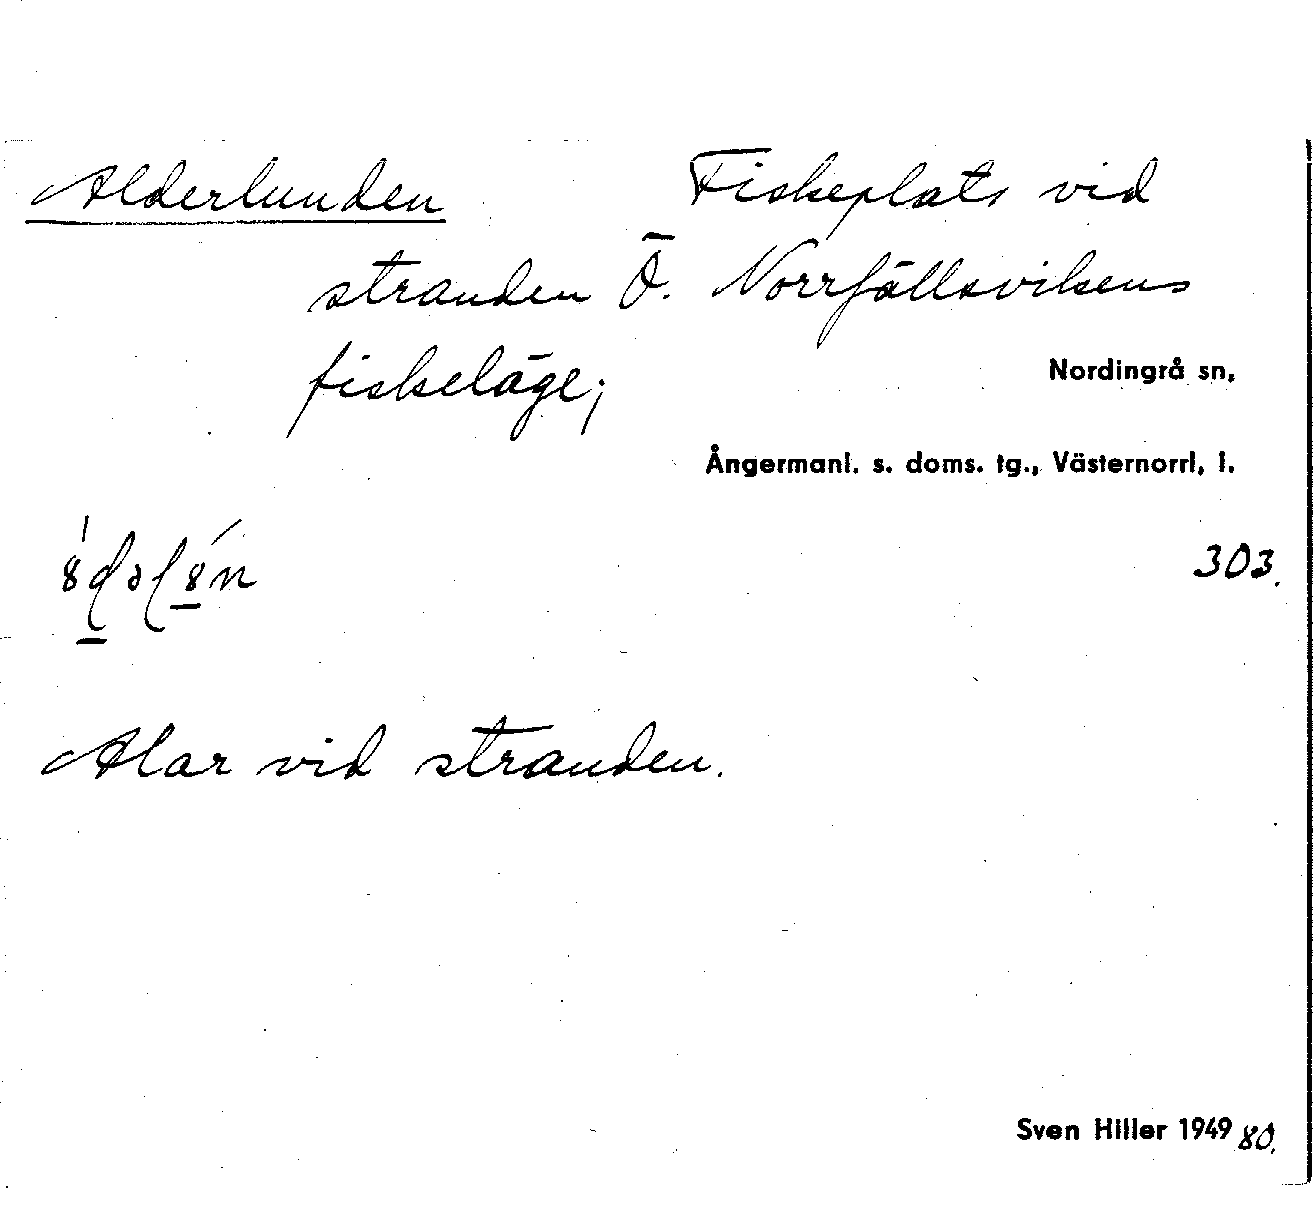 Alderlunden Fiskeplats vid
stranden Ö. Norrfällsvikens
fiskeläge;
Nordingrå sn,
Ångermanl. s. doms. tg., Västernorrl. l.
303.
Alar vid stranden.
Sven Hiller 1949 80.